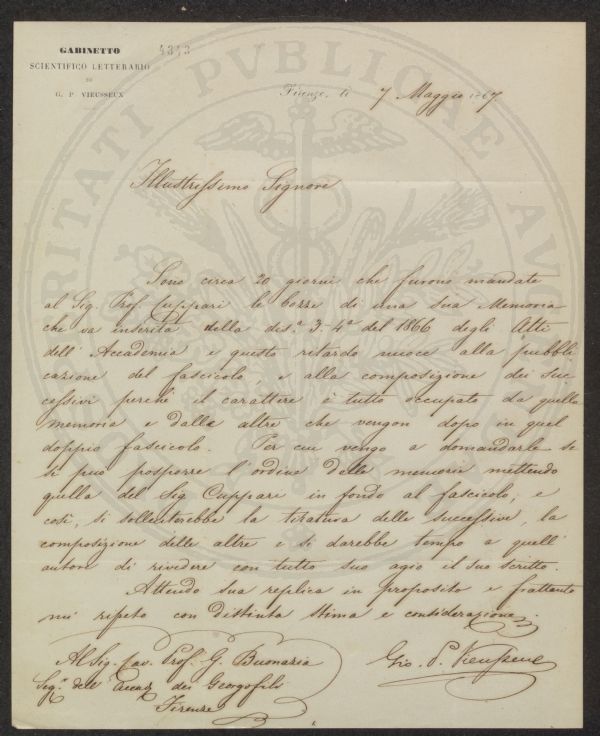 GABINETTO
SCIENTIFICO LETTERARIO
DI
G. P. VIEUSSEUX
4343
Firenze, li 7 Maggio 1867
Illustrissimo Signore
Sono circa 20 giorni che furono mandate
al Sig. Prof. Cuppari le bozze di una sua Memoria
che va inserita nella dis.ª 3-4ª del 1866 degli Atti
dell'Accademia e questo ritardo nuoce alla pubbli
cazione del fascicolo, e alla composizione dei suc
cessivi perchè il carattere è tutto occupato da quella
memoria e dalla altre che vengon dopo in quel
doppio fascicolo. Per cui vengo a domandarle se
si può posporre l'ordine delle memorie mettendo
quella del Sig. Cuppari in fondo al fascicolo; e
così, si solleciterebbe la tiratura delle successive, la
composizione delle altre e si darebbe tempo a quell'
autore di rivedere con tutto suo agio il suo scritto.
Attendo sua replica in proposito e frattanto
mi ripeto con distinta stima e considerazione.
Al Sig. Cav. Prof. G. Buonazia
Seg.º dell'Accad. dei Georgofili
Firenze
Gio. P. Vieusseux
PVBLICAE